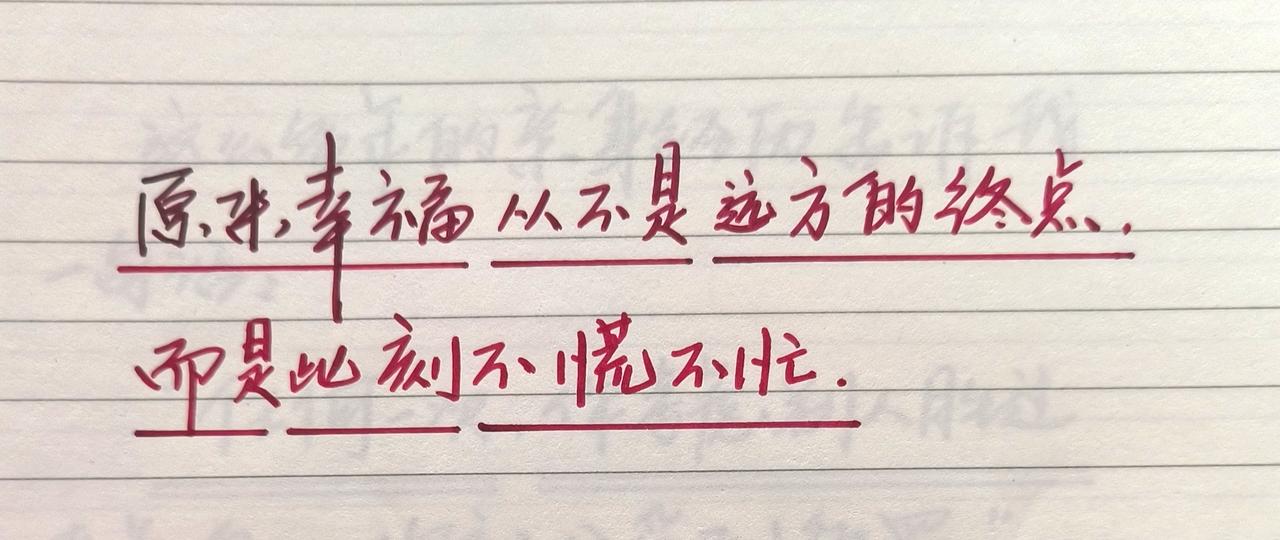 原来幸福从不是远方的终点.
而是此刻不慌不忙.